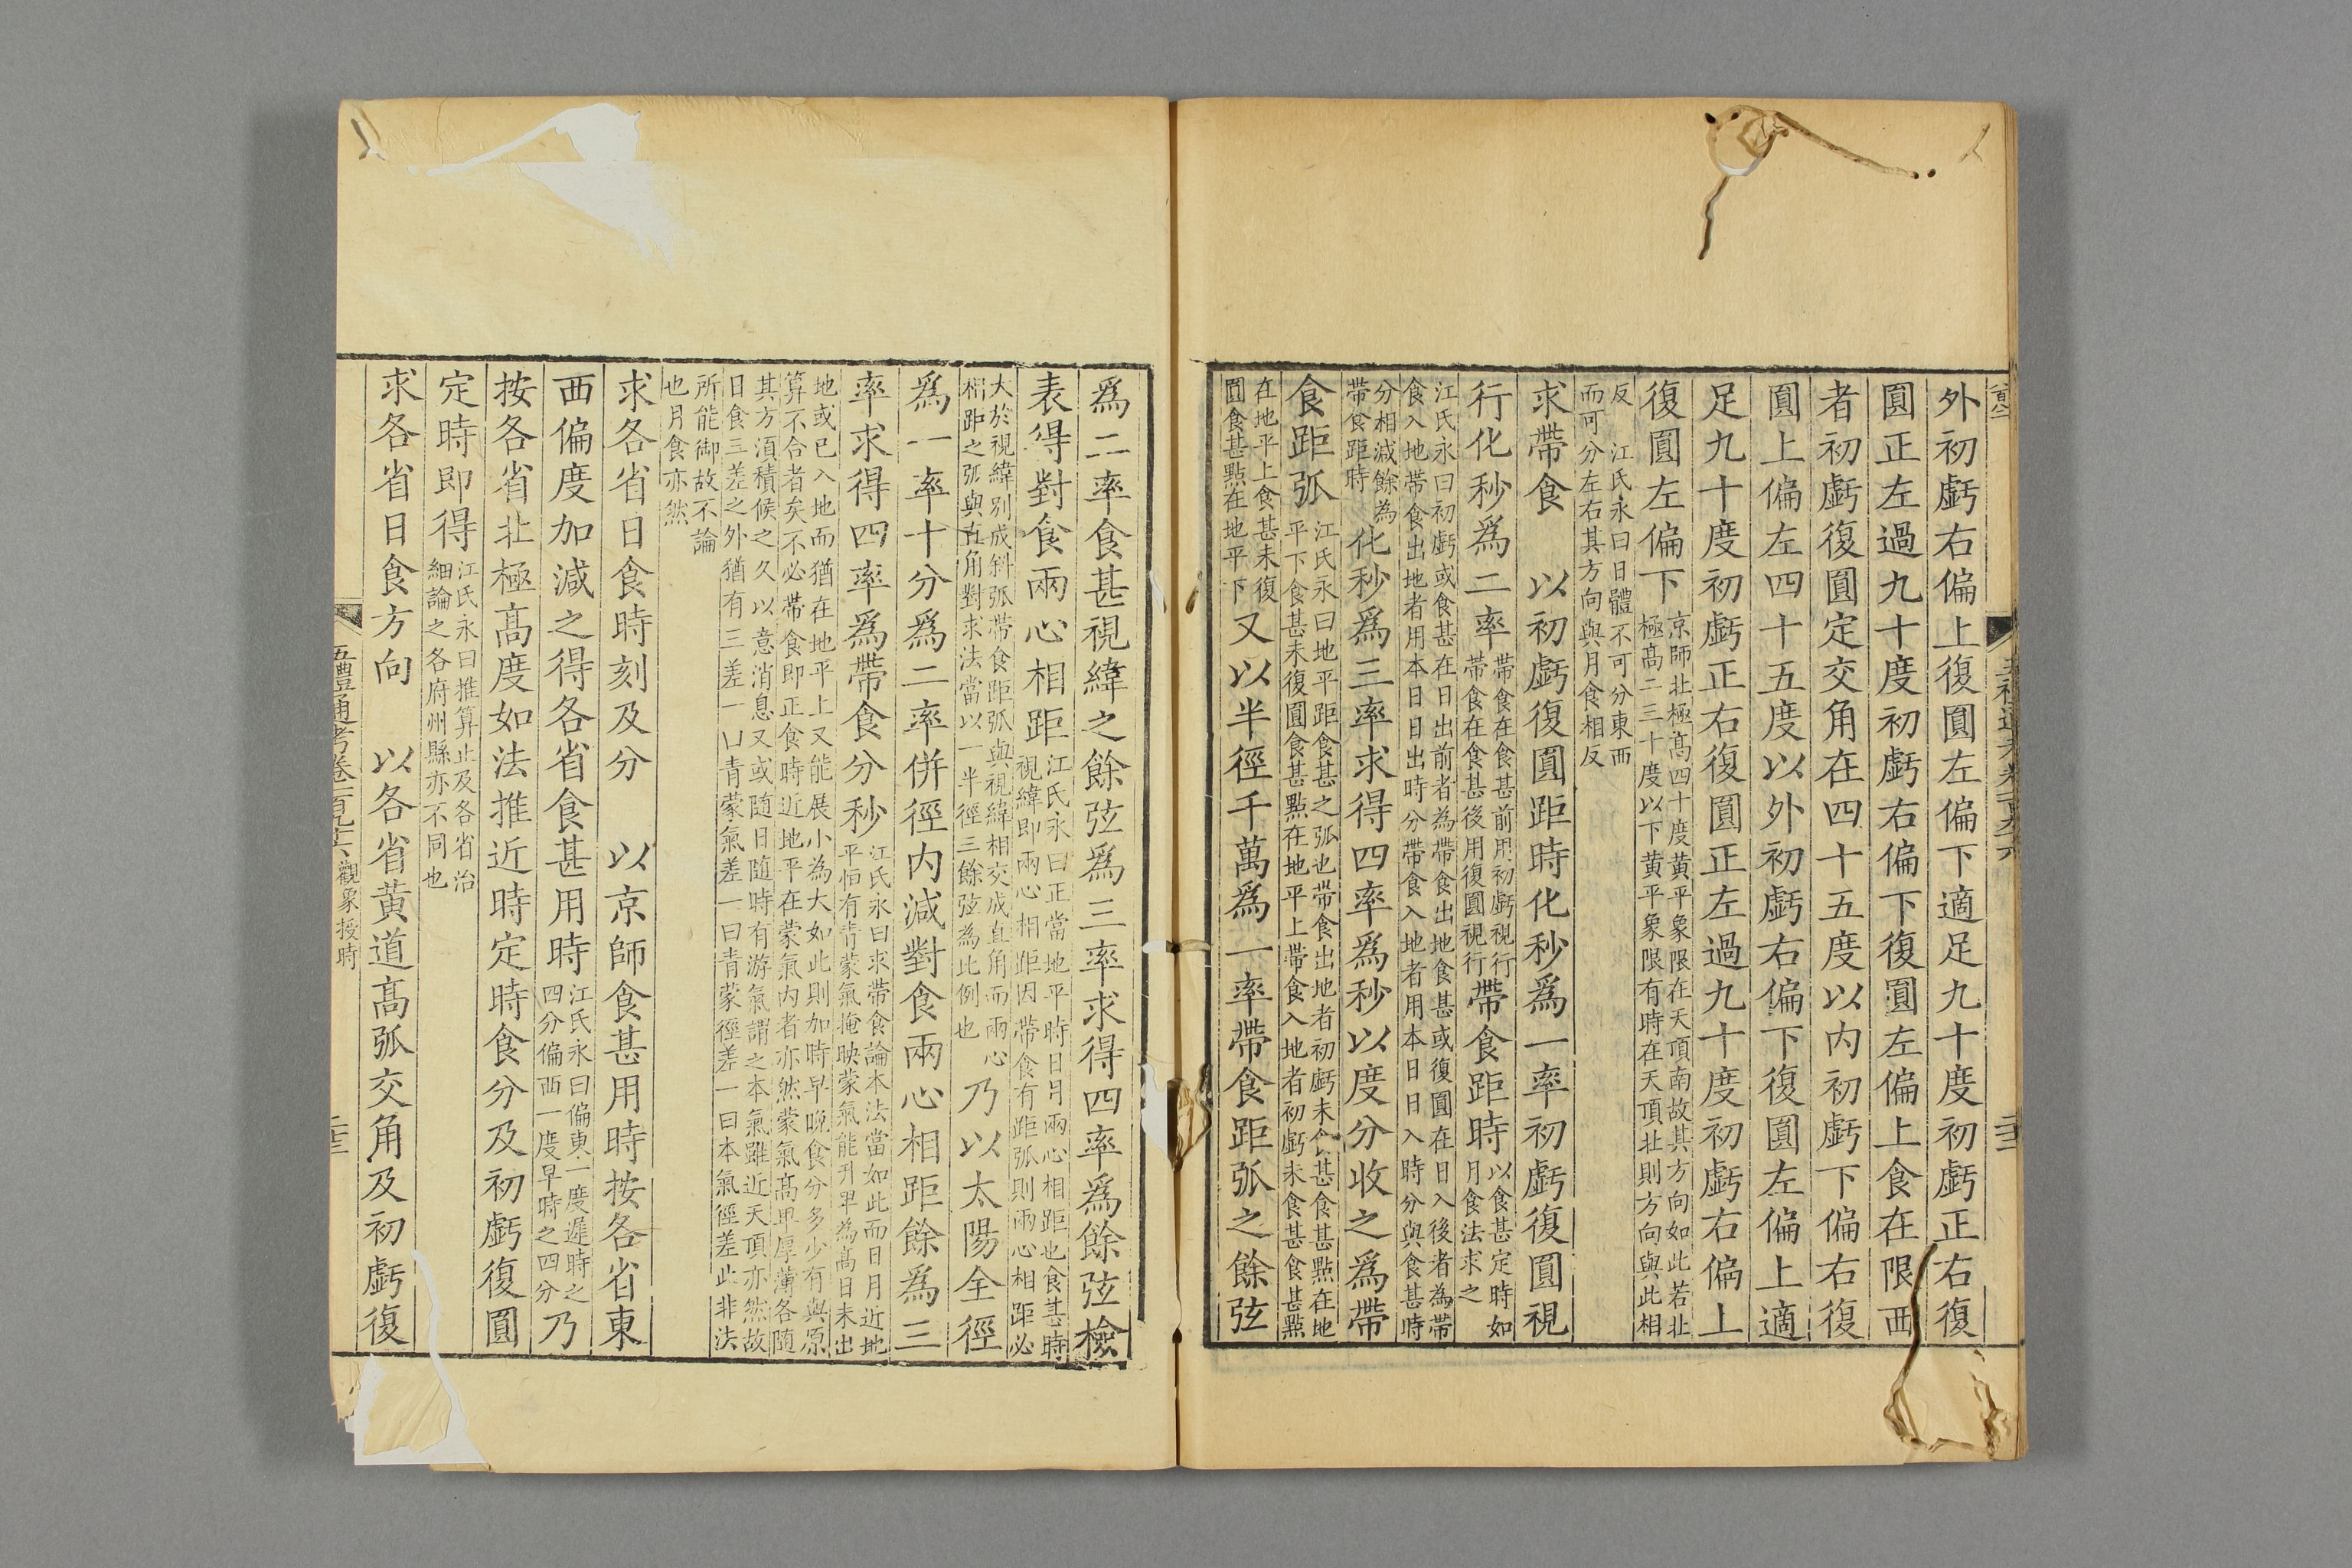 外初虧右偏上復圓左偏下適足九十度初虧正右復
圓正左過九十度初虧右偏下復圓左偏上食在限西
者初虧復圓定交角在四十五度以内初虧下偏右復
圓上偏左四十五度以外初虧右偏下復圓左偏上適
足九十度初虧正右復圓正左過九十度初虧右偏上
復圓左偏下
京師北極高四十度黄平象限在天頂南故其方向如此若北
極高二三十度以下黄平象限有時在天頂北則方向與此相
反　江氏永曰日體不可分東西
而可分左右其方向與月食相反
求帶食　以初虧復圓距時化秒爲一率初虧復圓視
行化秒爲二率
帶食在食甚前用初虧視行
帶食在食甚後用復圓視行
帶食距時
以食甚定時如
月食法求之
江氏永曰初虧或食甚在日出前者為帶食出地食甚或復圓在日入後者為帶
食入地帶食出地者用本日日出時分帶食入地者用本日日入時分與食甚時
分相減餘為
帶食距時
化秒爲三率求得四率爲秒以度分收之爲帶
食距弧
江氏永曰地平距食甚之弧也帶食出地者初虧未食甚食甚點在地
平下食甚未復圓食甚點在地平上帶食入地者初虧未食甚食甚點
在地平上食甚未復
圓食甚點在地平下
又以半徑千萬爲一率帶食距弧之餘弦
爲二率食甚視緯之餘弦爲三率求得四率爲餘弦檢
表得對食兩心相距
江氏永曰正當地平時日月兩心相距也食甚時
視緯即兩心相距因帶食有距弧則兩心相距必
大於視緯别成斜弧帶食距弧與視緯相交成直角而兩心
相距之弧與直角對求法當以一半徑三餘弦為此例也
乃以太陽全徑
爲一率十分爲二率併徑内減對食兩心相距餘爲三
率求得四率爲帶食分秒
江氏永曰求帶食論本法當如此而日月近地
平恒有青蒙氣掩映蒙氣能升卑為高日未出
地或已入地而猶在地平上又能展小為大如此則加時早晚食分多少有與原
算不合者矣不必帶食即正食時近地平在蒙氣内者亦然蒙氣高卑厚薄各隨
其方湏積候之久以意消息又或随日随時有游氣謂之本氣雖近天頂亦然故
日食三差之外猶有三差一曰青蒙氣差一曰青蒙徑差一曰本氣徑差此非法
所能御故不論
也月食亦然
求各省日食時刻及分　以京師食甚用時按各省東
西偏度加減之得各省食甚用時
江氏永曰偏東一度遲時之
四分偏西一度早時之四分
乃
按各省北極高度如法推近時定時食分及初虧復圓
定時即得
江氏永曰推算止及各省治
細論之各府州縣亦不同也
求各省日食方向　以各省黄道高弧交角及初虧復
五禮通考卷一百九十六 觀象授時